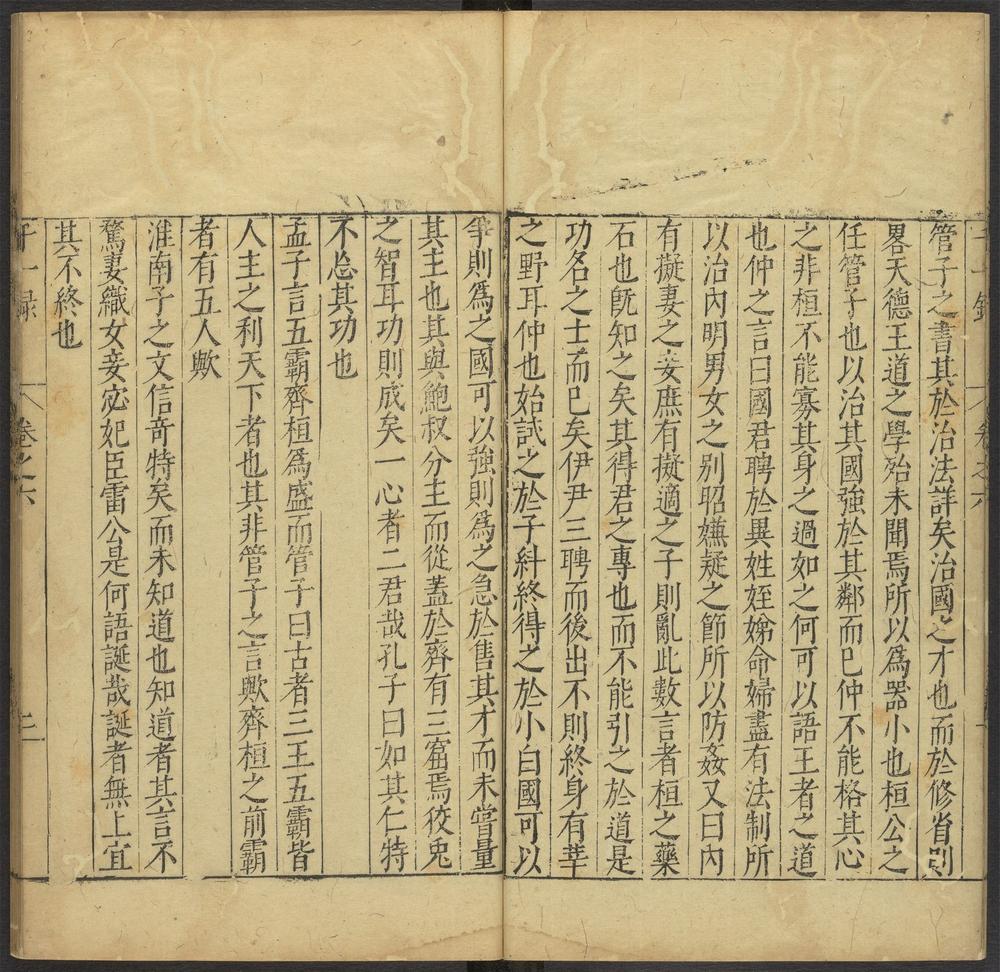 管子之書其於治法詳矣治國之才也而於修省則
畧天德王道之學殆未聞焉所以爲器小也桓公之
任管子也以治其國強於其鄰而已仲不能格其心
之非桓不能寡其身之過如之何可以語王者之道
也仲之言曰國君聘於異姓姪娣命婦盡有法制所
以治內明男女之别昭嫌疑之節所以防姦又曰內
有擬妻之妾庶有擬適之子則亂此數言者桓之藥
石也旣知之矣其得君之專也而不能引之於道是
功名之士而已矣伊尹三聘而後出不則終身有莘
之野耳仲也始試之於子糾終得之於小白國可以
爭則爲之國可以強則爲之急於售其才而未嘗量
其主也其與鮑叔分主而從蓋於齊有三窟焉狡兎
之智耳功則成矣一心者二君哉孔子曰如其仁特
不忘其功也
孟子言五霸齊桓爲盛而管子曰古者三王五霸皆
人主之利天下者也其非管子之言歟齊桓之前霸
者有五人歟
淮南子之文信奇特矣而未知道也知道者其言不
駡妻織女妾宓妃臣雷公是何語誕哉誕者無上宜
其不終也
子一録
卷之六
三